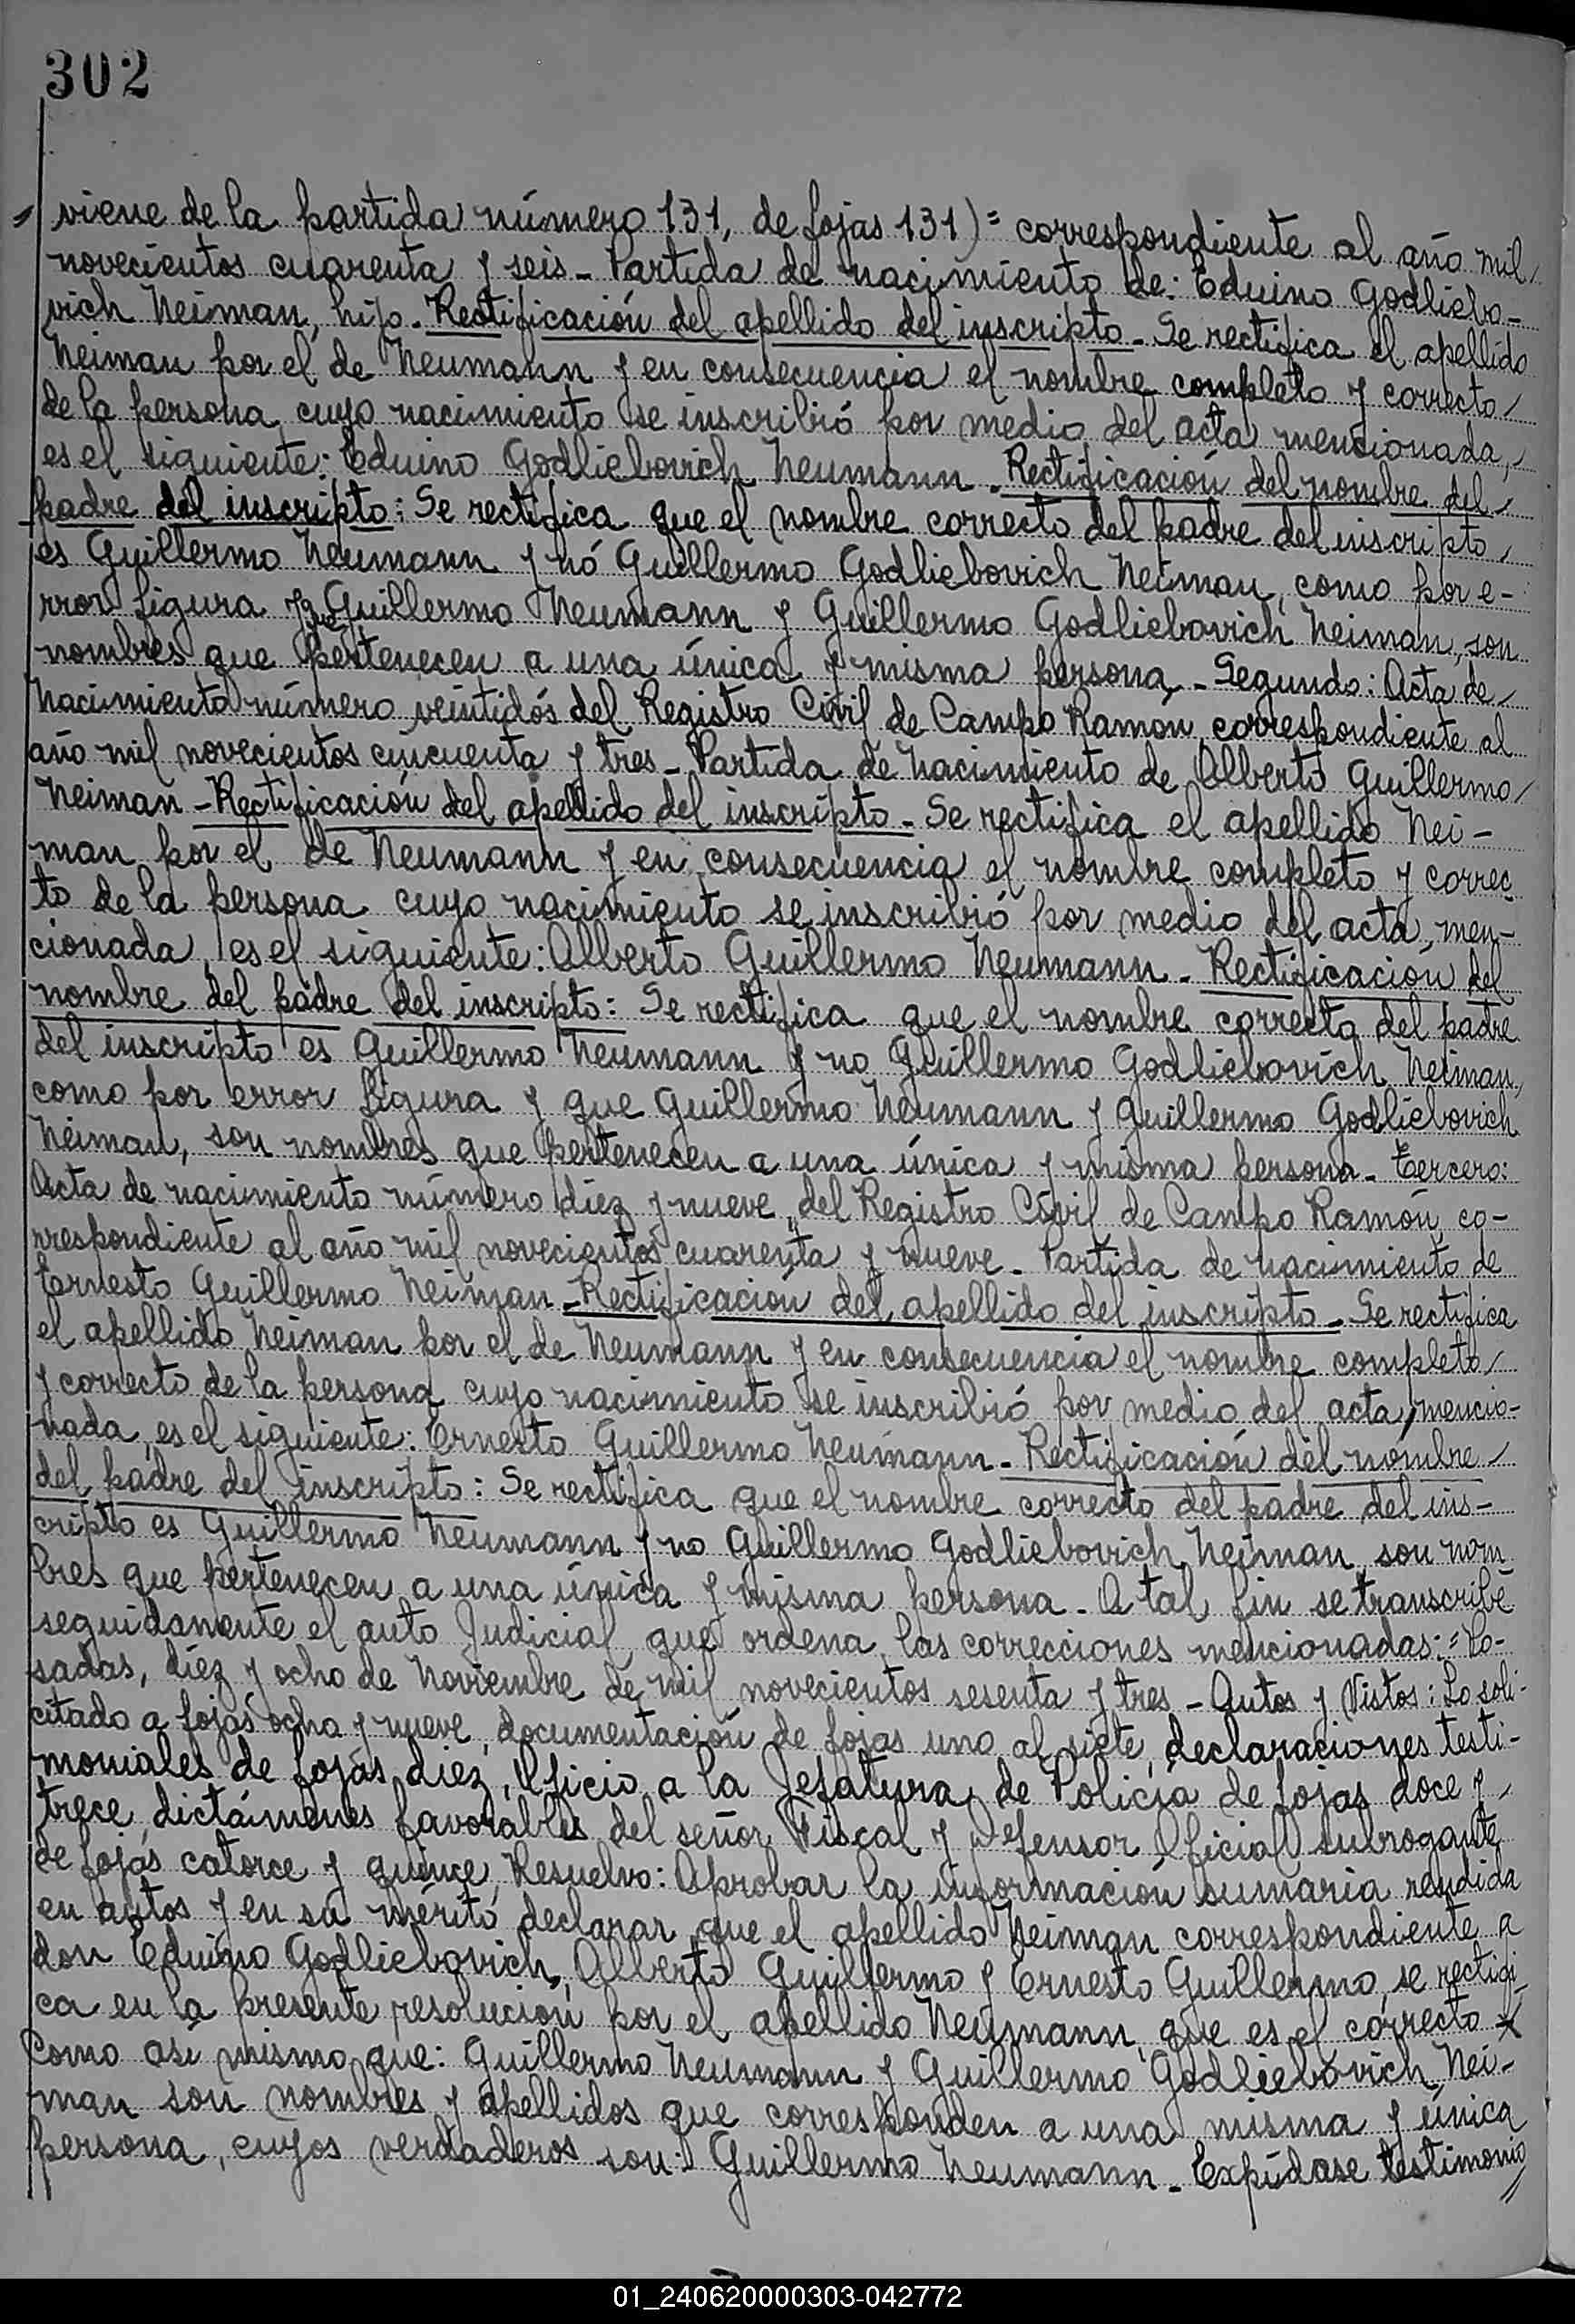 302
viene de la partida número 131, de fojas 131)= correspondiente al año mil/
novecientos cuarenta y seis - Partida de nacimiento de: Eduino Godliebo-
vich Neiman, hijo. Rectificación del apellido del inscripto - Se rectifica el apellido
Neiman por el de Neumann y en consecuencia el nombre completo y correcto/
de la persona cuyo nacimiento se inscribió por medio del acta mencionada,/
es el siguiente: Eduino Godliebovich Neumann - Rectificación del nombre del/
padre del inscripto: Se rectifica que el nombre correcto del padre del inscripto,
es Guillermo Neumann y nó Guillermo Godliebovich Neiman, como por e-
rror figura y que Guillermo Neumann y Guillermo Godliebovich Neiman, son
nombres que pertenecen a una única y misma persona - Segundo: Acta de/
nacimiento número veintidós del Registro Civil de Campo Ramón, correspondiente al
año mil novecientos cincuenta y tres - Partida de nacimiento de Alberto Guillermo/
Neiman - Rectificación del apellido del inscripto - Se rectifica el apellido Nei-
man por el de Neumann y en consecuencia el nombre completo y correc-
to de la persona cuyo nacimiento se inscribió por medio del acta, men-
cionada, es el siguiente: Alberto Guillermo Neumann - Rectificación del
nombre del padre del inscripto: Se rectifica que el nombre correcto del padre
del inscripto es Guillermo Neumann y no Guillermo Godliebovich Neiman,
como por error figura y que Guillermo Neumann y Guillermo Godliebovich
Neiman, son nombres que pertenecen a una única y misma persona - Tercero:
Acta de nacimiento número diez y nueve, del Registro Civil de Campo Ramón, co-
rrespondiente al año mil novecientos cuarenta y nueve - Partida de nacimiento de
Ernesto Guillermo Neiman - Rectificación del apellido del inscripto - Se rectifica
el apellido Neiman por el de Neumann y en consecuencia el nombre completo/
y correcto de la persona cuyo nacimiento se inscribió por medio del acta, mencio-
nada, es el siguiente: Ernesto Guillermo Neumann - Rectificación del nombre/
del padre del inscripto: Se rectifica que el nombre correcto del padre del ins-
cripto es Guillermo Neumann y no Guillermo Godliebovich Neiman, son nom
bres que pertenecen a una única y misma persona - A tal fin se transcribe
seguidamente el auto Judicial que ordena las correcciones mencionadas: = Po-
sadas, diez y ocho de Noviembre de mil novecientos sesenta y tres - Autos y Vistos: Lo soli-
citado a fojas ocho y nueve, documentación de fojas uno al siete, declaraciones testi-
moniales de fojas diez, Oficio a la Jefatura de Policía de fojas doce y/
trece, dictámenes favorables del señor Fiscal y Defensor Oficial subrogante
de fojas catorce y quince, Resuelvo: Aprobar la información sumaria rendida
en autos y en su mérito declarar que el apellido Neiman correspondiente a
don Eduino Godliebovich, Alberto Guillermo y Ernesto Guillermo, se rectifi-
ca en la presente resolución por el apellido Neumann, que es el correcto
Como así mismo que: Guillermo Neumann y Guillermo Godliebovich Nei-
man son nombres y apellidos que corresponden a una misma y única
persona, cuyos verdaderos son: Guillermo Neumann - Expídase testimonio//
01_240620000303-042772